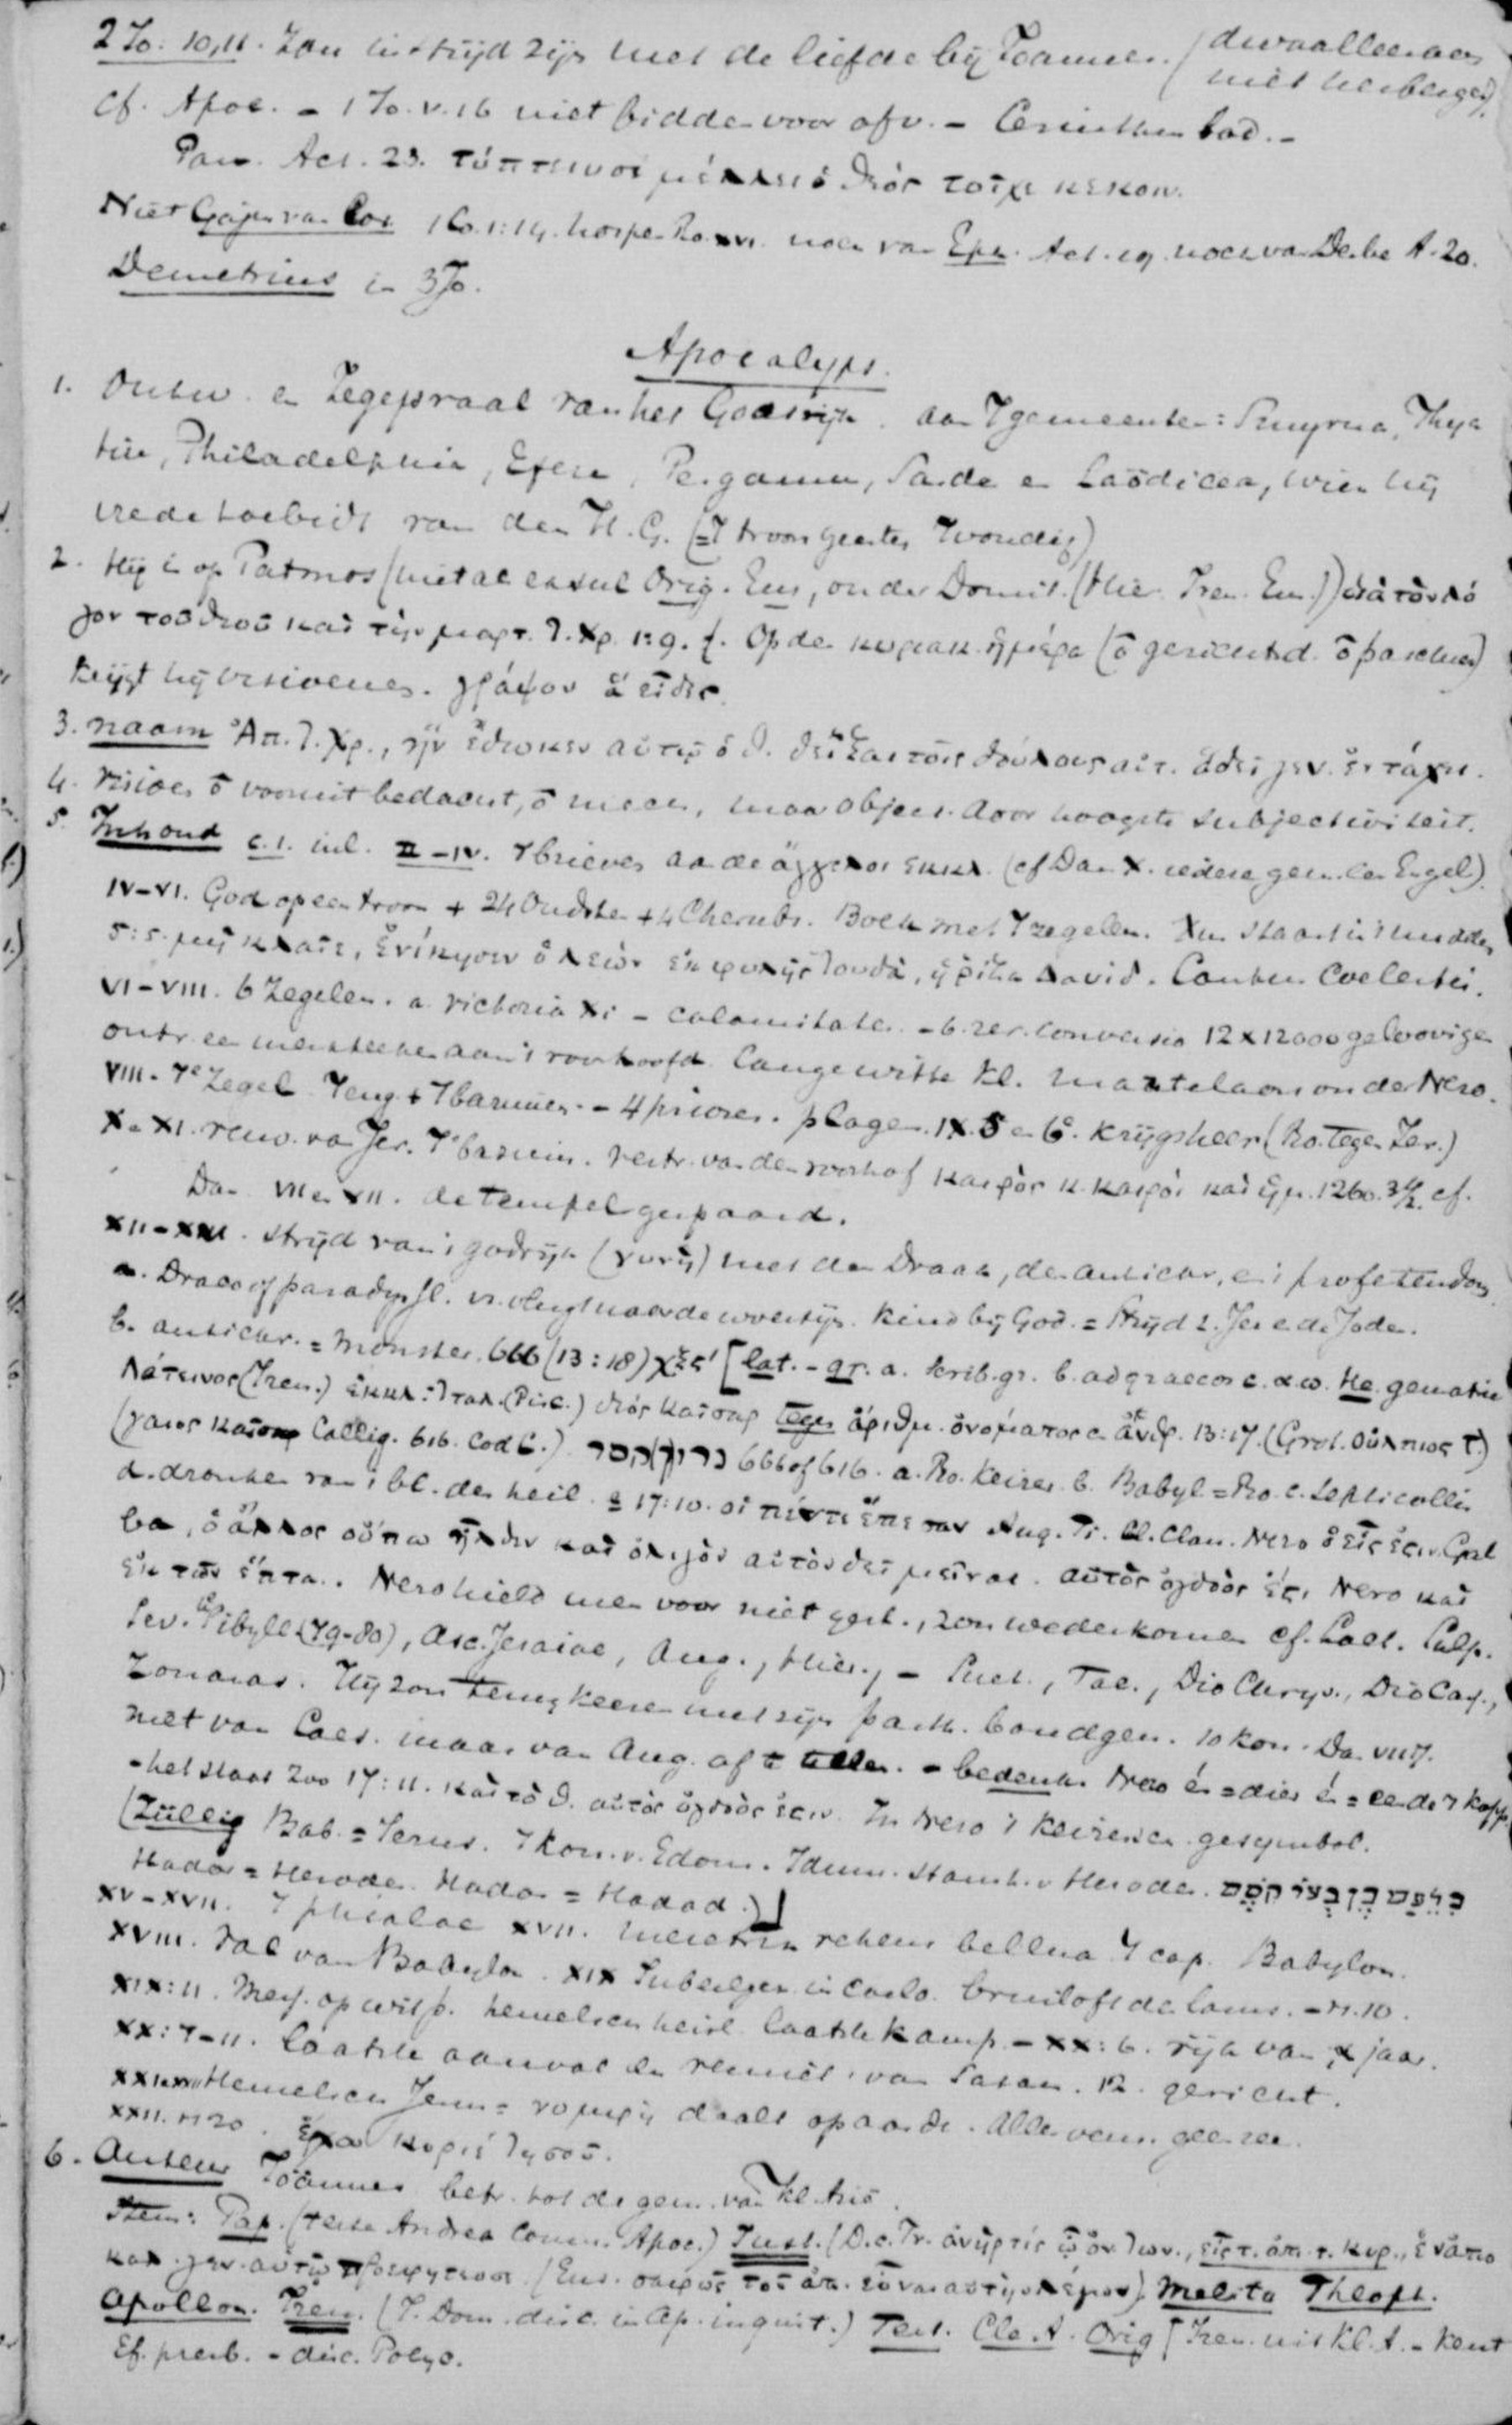 2 Jo: 10,11. Zou in strijd zijn met de liefde bij Joannes. (dwaalleeraars
niet herbergen).
cf. Apoc. – 1 Jo. v. 16 niet bidden voor afv. – Cerinthus bad. –
Pau. Act. 23. τύπτειν σε μέλλει ὁ θεός τοῖχε κεκον.
Niet Gajus van Cor 1 Co. 1:14. hospes Ro. XVI. noch van Eph. Act. 19. noch van Derbe A. 20.
Demetrius in 3 Jo.
Apocalyps.
1. Ontw. en Zegepraal van het Godsrijk. aan 7 gemeenten: Smyrna, Thya
tire, Philadelphia, Efese, Pergamus, Sarde en Laödicea, wien hij
vrede toebidt van den H. G. (=7 troongeesten 7voudig)
2. Hij is op Patmos (niet als exsul Orig. Eus, onder Domit. (Hier. Iren. Eus.)) διὰ τὸν λό
γον τοῦ θεοῦ καὶ τὴν μαρτ. Ἰ. Χρ. 1:9. Op de κυριακ. ἡμέρα (ō gerichtsd. ō paschen)
krijgt hij visioenen. γράψον ἃ εἶδες.
3. naam Ἀπ. Ἰ. Χρ., ἣν ἔδωκεν αὐτῷ ὁ θ. δεῖξαι τοῖς δούλοις αὐτ. ἃ δεῖ γεν. ἐν τάχει.
4. visioen ō vooruit bedacht, ō meer, maar object. door hoogste subjectiviteit.
5. Inhoud c. 1. inl. II–IV. 7 brieven aan de ἄγγελοι ἐκκλ. (cf Dan X. iedere gem. een Engel).
IV–VI. God op een troon + 24 Oudsten + 4 Cherubs. Boek met 7 zegelen. Xus staat in 't midden
5:5. μὴ κλαῖε, ἐνίκησεν ὁ λεὼν ἐκ φυλῆς Ἰουδα, ἡ ῥίζα David. Cantus Coelestis.
VI–VIII. 6 Zegelen. a. victoria Xi – calamitates – 6. zer. conversio 12 x 12000 geloovigen
ontv. een merkteeken aan 't voorhoofd. Lange witte kl. martelaars onder Nero.
VIII. 7e Zegel 7 eng. + 7 bazuinen. – 4 priores. plagen. IX. 5 en 6e. Krijgsheer (Ro. tegen Jer.)
X. XI. verw. van Jer. 7e bazuin. vertr. van den voorhof καιρὸς κ. καιροὶ καὶ ἡμ. 1260. 3½. cf.
Dan VII en XII. de tempel gespaard.
XII–XIII. strijd van 't godsrijk (γυνή) met den Draak, de antichr, en 't profetendom
a. Draco of paradijssl. vr. vlugt naar de woestijn. Kind bij God. = strijd t. Jes en de Joden.
b. antichr. = monster. 666 (13:18) χξς' [lat. – gr. a. scrib. gr. b. ad graecos c. α ω. He gematrie
Λάτεινος (Iren.) ἐκκλ. Ἰταλ. θεός καῖσαρ tegen ἄριθμ. ὀνόματος c ἄνθρ. 13:17. (Grot. Οὔλπιος T.)
(γαιος καῖσαρ Callig. 616. Cod C.) נרון קסר 666 of 616. a. Ro. keizer. b. Babyl = Ro. c. septicollis
d. dronken van 't bl. der heil. e 17:10. οἱ πέντε ἔπεσαν Aug. Ti. Cl. Clau. Nero ὁ εἷς ἐςιν. Gal
ba, ὁ ἄλλος οὔπω ἦλθεν καὶ ὀλιγὸν αὐτὸν δεῖ μεῖναι. αὐτὸς ὀγδοὸς ἐςι Nero καὶ
ἐκ τῶν ἕπτα. Nero hield men voor niet gest., zou wederkomen cf. Lact. Sulp.
Sev. Sibyll (79–80), Asc. Jesaiae, Aug., Hier., – Suet., Tac., Dio Chrys., Dio Cas.,
Zonaras. Hij zou terugkeeren met zijn parth. bondgen. 10 kon. Dan VII:7.
niet van Caes. maar van Aug. af te tellen. – bedenk. Nero én = dier én = een der 7 kopp.
– het staat zoo 17:11. καὶ τὸ θ. αὐτὸς ὀγδοὸς ἐςιν. In Nero 't keizersch. gesymbol.
(Züllig Bab. = Jerus. 7 kon. v. Edom. Idum. stamh. v Herodes.
Hadar = Herodes. Hadar = Hadad.)]
XV–XVII. 7 phialae XVII. meretrix vehens bellua 7 cap. Babylon.
XVIII. Val van Babylon. XIX Jubelzen in Coelo. bruiloft des lams. – vs. 10.
XIX:11. Mess. op wit p. hemelsch heirl. laatste kamp – XX:6. rijk van jaar.
XX:7–11. laatste aanval en verniet. van Satan. 12. gericht.
XXI Hemelsch Jerus = νυμφή daalt op aarde. Alles vern. geen zee.
XXII. vs 20. ἔρχου κυριέ Ἰησοῦ.
6. Auteur Joännes betr. tot de gem. van Kl. Azië.
Stem: Pap. (teste Andrea Comm. Apoc.) Just. (D. c. Tr. ἀνήρ τις ᾧ ὀν. Ἰων., εἷς τ. ἀπ. τ. Χυρ., ἐν ἀπο
καλ. γεν. αὐτῷ προεφητευσε. (Eus. σαφῶς τοῦ ἀπ. Melito Theoph.
Apollon. Iren. (J. Dom. disc. in Ap. inquit.) Tert. Cle. A. Orig [Iren. uit Kl. A. – kent
Ef. presb. – disc. Polyc.